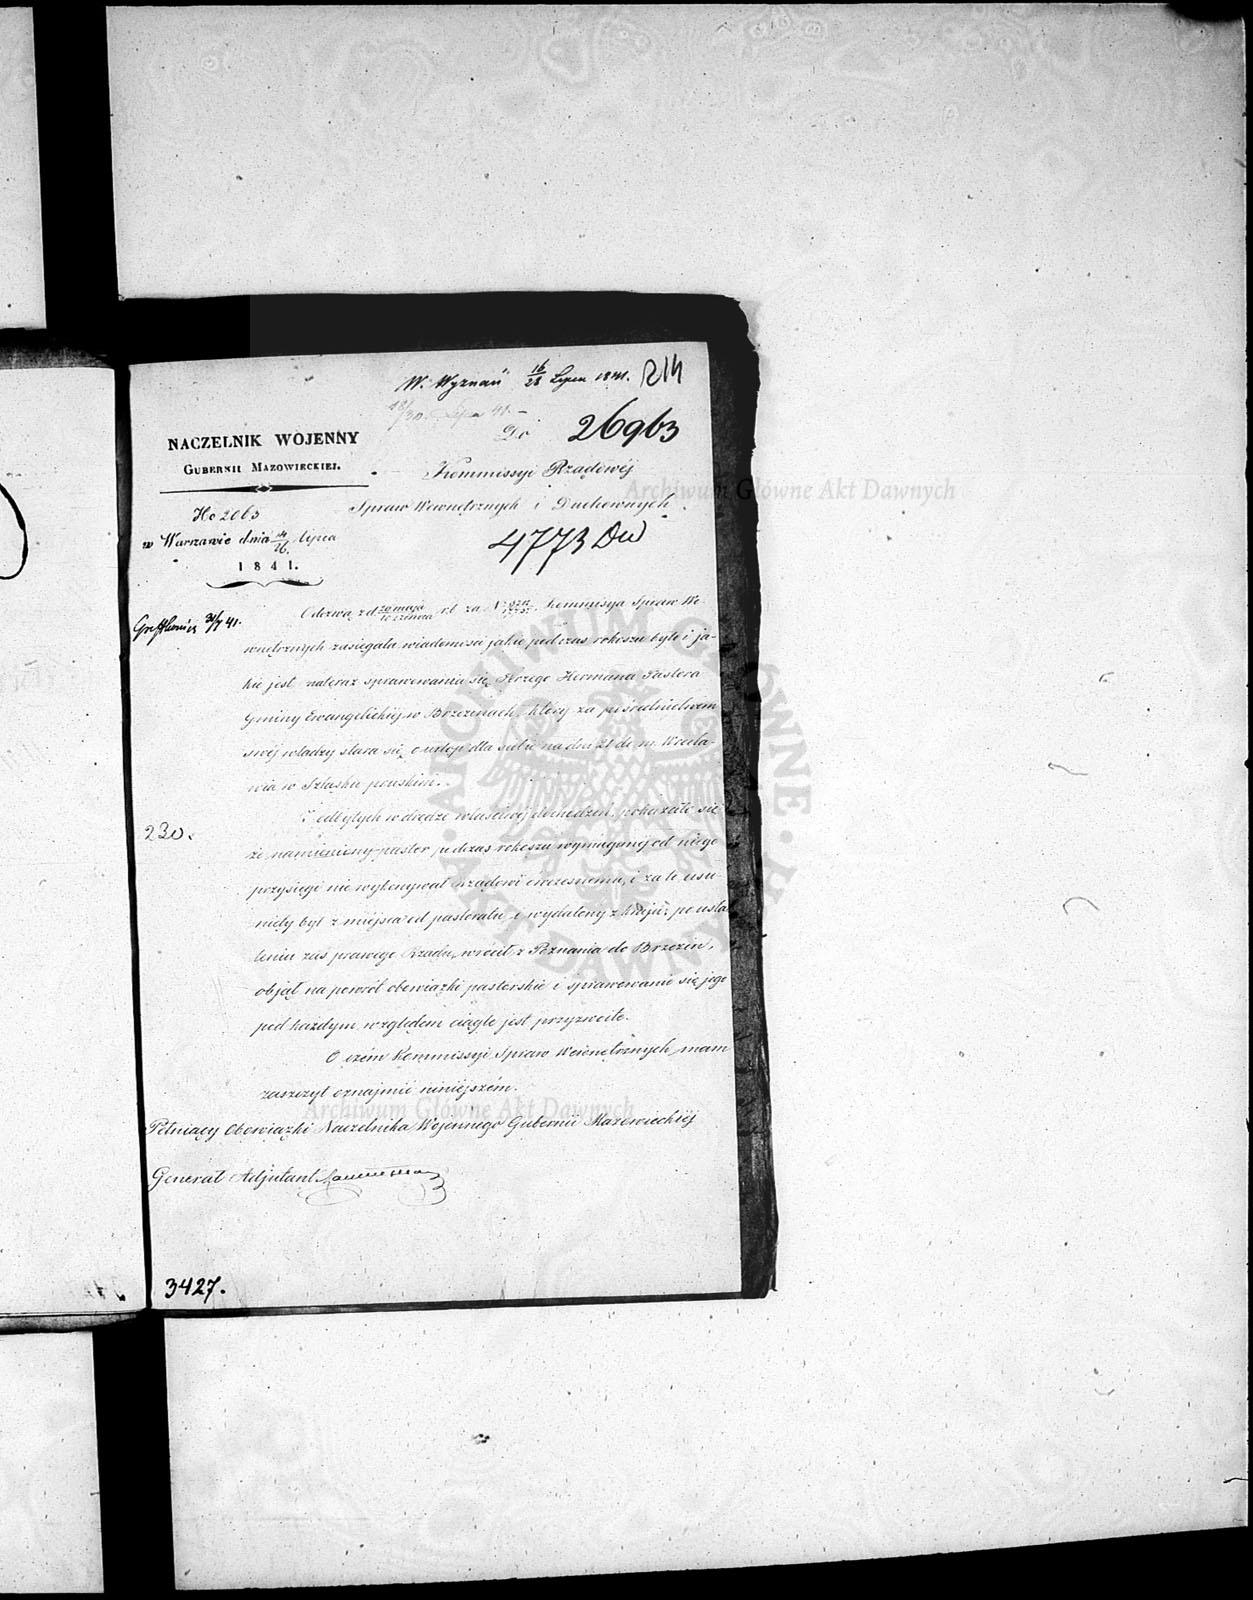 W. Wyznań 16/28 Lipca 1841. 214
18/30. Lipca 41.
Do 26963
NACZELNIK WOJENNY
GUBERNII MAZOWIECKIEJ.
Kommissyi Rządowéj
Spraw Wewnętrznych i Duchownych.
No 2063
w Warszawie dnia 14/26. Lipca
1841.
4773 DW
31/7 41.
Odezwą z d 29 maja/10 czerwca r.b. za N°, Kommisya Spraw We-
wnętrznych zasięgała wiadomości jakie podczas rokoszu było i ja-
kie jest nateraz sprawowania się Jerzego Hermana Pastora
Gminy Ewangelickiéj w Brzezinach, który za pośrednictwem
swéj władzy stara się o urlop dla siebie na dni 21 do m. Wrocła-
wia w Szląsku pruskim.
230.
Z odbytych w drodze właściwéj dochodzeń, pokazało się
że namieniony pastor podczas rokoszu wymaganéj od niego
przysięgi nie wykonywał rządowi ówczesnemu, i za to usu-
nięty był z miejsca od pastoratu i wydalony z kraju; po usta-
leniu zaś prawego Rządu, wrócił z Poznania do Brzezin,
objął na powrót obowiązki pastorskie i sprawowanie się jego
pod każdym względem ciągle jest przyzwoite.
O czém Kommissyi Spraw Wewnętrznych mam
zaszczyt oznajmić niniejszém.
Pełniący Obowiązki Naczelnika Wojennego Gubernii Mazowieckiéj
Generał Adjutant
3427.
Archiwum Główne Akt Dawnych
Archiwum Główne Akt Dawnych
ARCHIWUM GŁÓWNE
AKT DAWNYCH